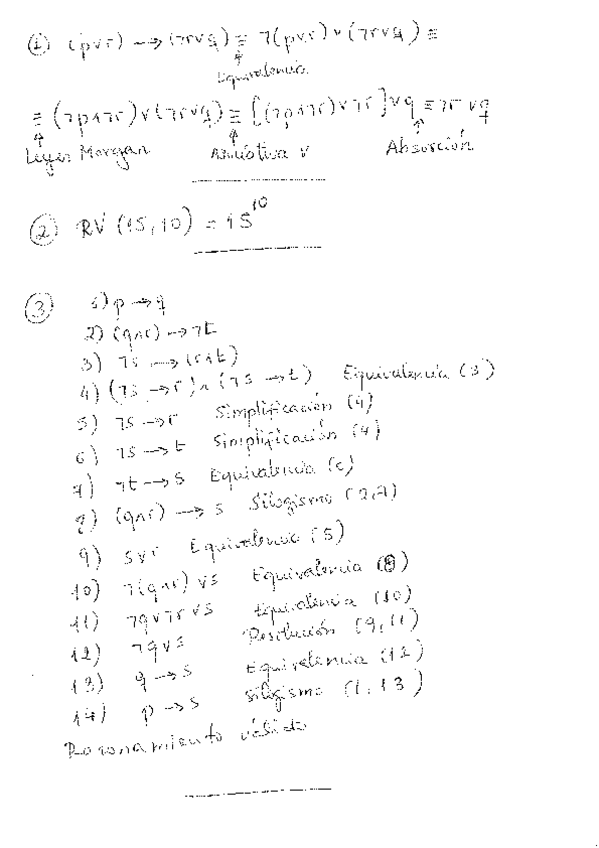 ① (p∨r) → (¬r∨q) ≡ ¬(p∨r) ∨ (¬r∨q) ≡
Equivalencia
≡ (¬p∧¬r) ∨ (¬r∨q) ≡ [(¬p∧¬r) ∨ ¬r] ∨ q ≡ ¬r ∨ q
Leyes Morgan Asociativa ∨ Absorción
② RV (15,10) = 15^10
③ 1) p → q
2) (q∧r) → ¬t
3) ¬s → (r∧t)
4) (¬s → r) ∧ (¬s → t) Equivalencia (3)
5) ¬s → r Simplificación (4)
6) ¬s → t Simplificación (4)
7) ¬t → s Equivalencia (6)
8) (q∧r) → s Silogismo (2,7)
9) s∨r Equivalencia (5)
10) ¬(q∧r) ∨ s Equivalencia (8)
11) ¬q∨¬r∨s Equivalencia (10)
12) ¬q∨s Resolución (9,11)
13) q → s Equivalencia (12)
14) p → s Silogismo (1,13)
Razonamiento válido